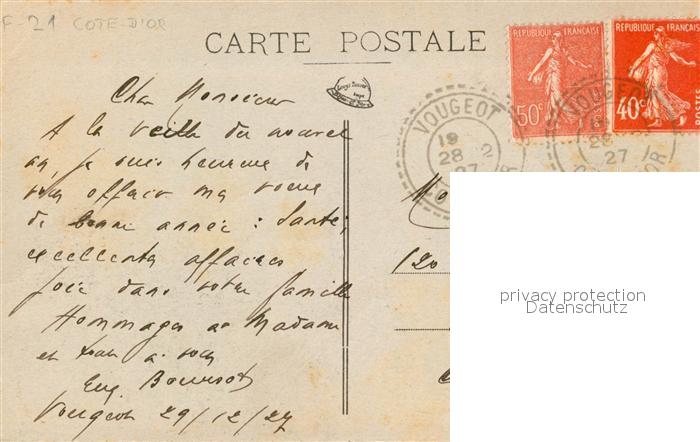 F-21 COTE-D'OR
CARTE POSTALE
REPUBLIQUE FRANÇAISE
50c
REPUBLIQUE FRANÇAISE
40c
POSTES
VOUGEOT
19
28
27
VOUGEOT
28
27
D'OR
Cher Monsieur
A la veille du nouvel
an, je suis heureux de
vous offrir mes voeux
de bonne année : Santé,
excellentes affaires
joie dans votre famille
Hommages à Madame
et à vous
Eug.
Vougeot 29/12/27
120
privacy protection
Datenschutz